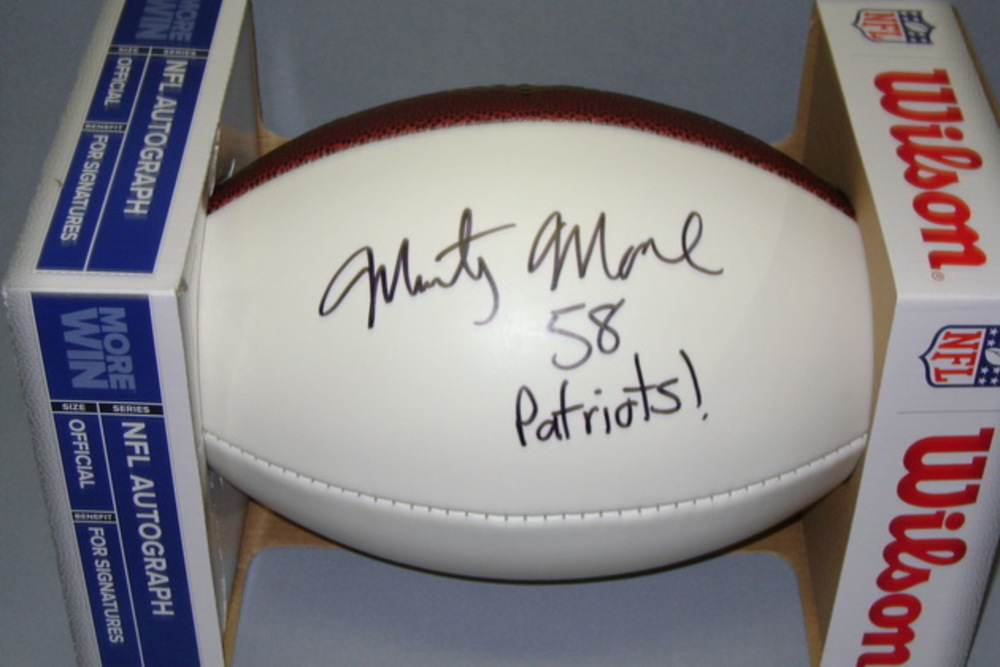 MORE
WIN
SIZE
SERIES
OFFICIAL
NFL AUTOGRAPH
BENEFIT
FOR SIGNATURES
MORE
WIN
SIZE
SERIES
OFFICIAL
NFL AUTOGRAPH
BENEFIT
FOR SIGNATURES
Marty Moore
58
Patriots!
NFL
Wilson®
NFL
Wilson